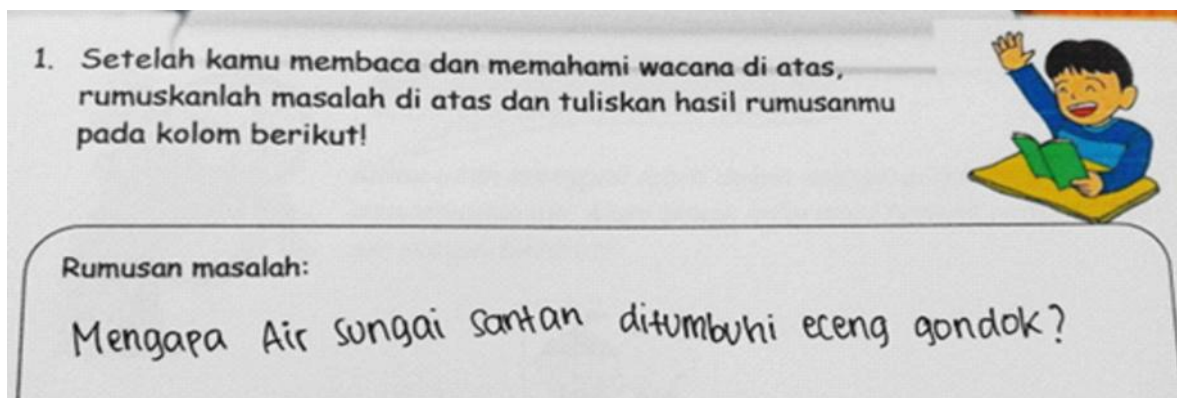 1. Setelah kamu membaca dan memahami wacana di atas,
rumuskanlah masalah di atas dan tuliskan hasil rumusanmu
pada kolom berikut!
Rumusan masalah:
Mengapa Air sungai santan ditumbuhi eceng gondok?